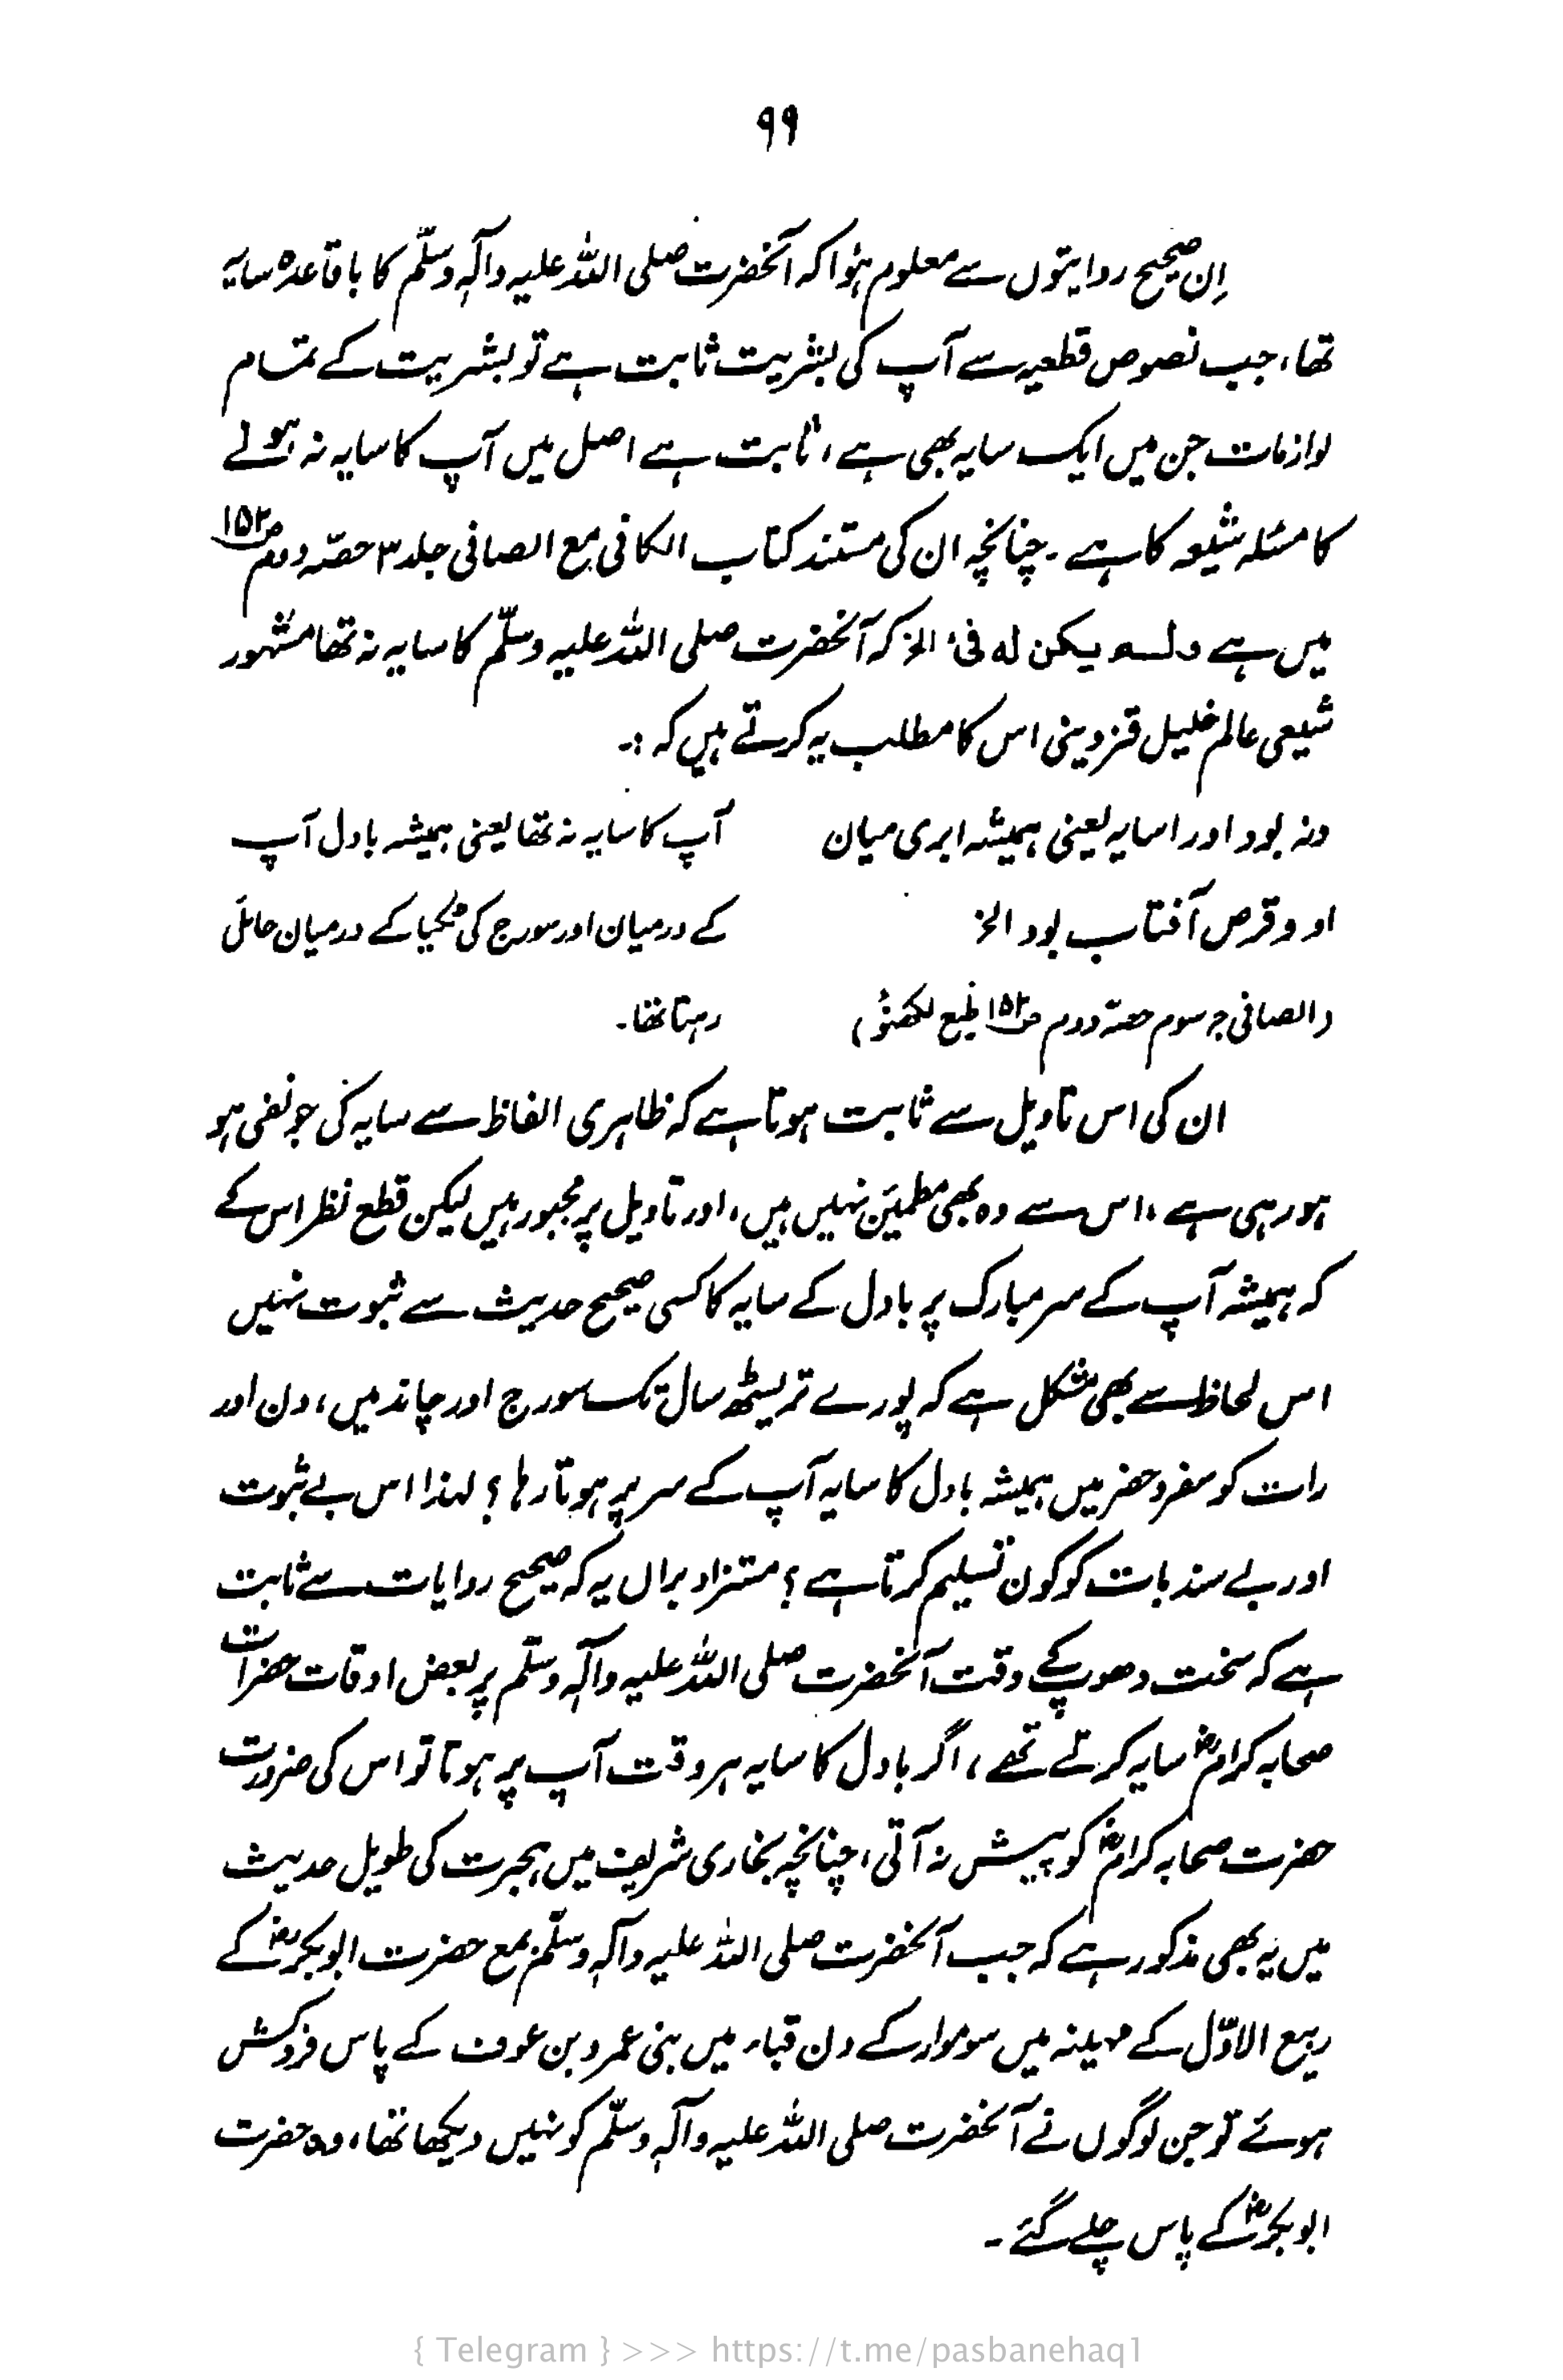 ۹۹
اِن صحیح روایتوں سے معلوم ہؤا کہ آنحضرت صلی اللہ علیہ وآلہٖ وسلّم کا باقاعدہ سایہ
تھا، جب نصوص قطعیہ سے آپ کی بشریت ثابت ہے تو بشریت کے تمام
لوازمات جن میں ایک سایہ بھی ہے، ثابت ہے اصل میں آپ کا سایہ نہ ہونے
کا مسئلہ شیعہ کا ہے ۔ چنانچہ ان کی مستند کتاب الکافی مع الصافی جلد ۳ حصّہ دوم ص۱۵۲
میں ہے ولم یکن لہ فیٔ الخ کہ آنحضرت صلی اللہ علیہ وسلّم کا سایہ نہ تھا مشہور
شیعی عالم خلیل قزوینی اس کا مطلب یہ کرتے ہیں کہ :۔
ونہ بود اورا سایہ یعنی ہمیشہ ابری میان
او و قرص آفتاب بود الخ
(الصافی جز سوم حصّہ دوم ص۱۵۲ طبع لکھنؤ)
آپ کا سایہ نہ تھا یعنی ہمیشہ بادل آپ
کے درمیان اور سورج کی ٹکیا کے درمیان حائل
رہتا تھا۔
ان کی اس تاویل سے ثابت ہوتا ہے کہ ظاہری الفاظ سے سایہ کی جو نفی ہو
ہو رہی ہے، اس سے وہ بھی مطمئن نہیں ہیں، اور تاویل پر مجبور ہیں لیکن قطع نظر اس کے
کہ ہمیشہ آپ کے سر مبارک پر بادل کے سایہ کا کسی صحیح حدیث سے ثبوت نہیں
اس لحاظ سے بھی مشکل ہے کہ پورے تریسٹھ سال تک سورج اور چاند میں، دن اور
رات کو سفر وحضر میں ہمیشہ بادل کا سایہ آپ کے سر پر ہوتا رہا؟ لہٰذا اس بے ثبوت
اور بے سند بات کو کون تسلیم کرتا ہے؟ مستزاد براں یہ کہ صحیح روایات سے ثابت
ہے کہ سخت دھوپ کے وقت آنحضرت صلی اللہ علیہ وآلہٖ وسلّم پر بعض اوقات حضرات
صحابہ کرامؓ سایہ کرتے تھے، اگر بادل کا سایہ ہر وقت آپ پر ہوتا تو اس کی ضرورت
حضرت صحابہ کرامؓ کو پیش نہ آتی، چنانچہ بخاری شریف میں ہجرت کی طویل حدیث
میں یہ بھی مذکور ہے کہ جب آنحضرت صلی اللہ علیہ وآلہٖ وسلّم بمع حضرت ابوبکرؓ کے
ربیع الاوّل کے مہینہ میں سوموار کے دن قباء میں بنی عمرو بن عوف کے پاس فروکش
ہوئے تو جن لوگوں نے آنحضرت صلی اللہ علیہ وآلہٖ وسلّم کو نہیں دیکھا تھا، وہ حضرت
ابوبکرؓ کے پاس چلے گئے ۔
{ Telegram } >>> https://t.me/pasbanehaq1